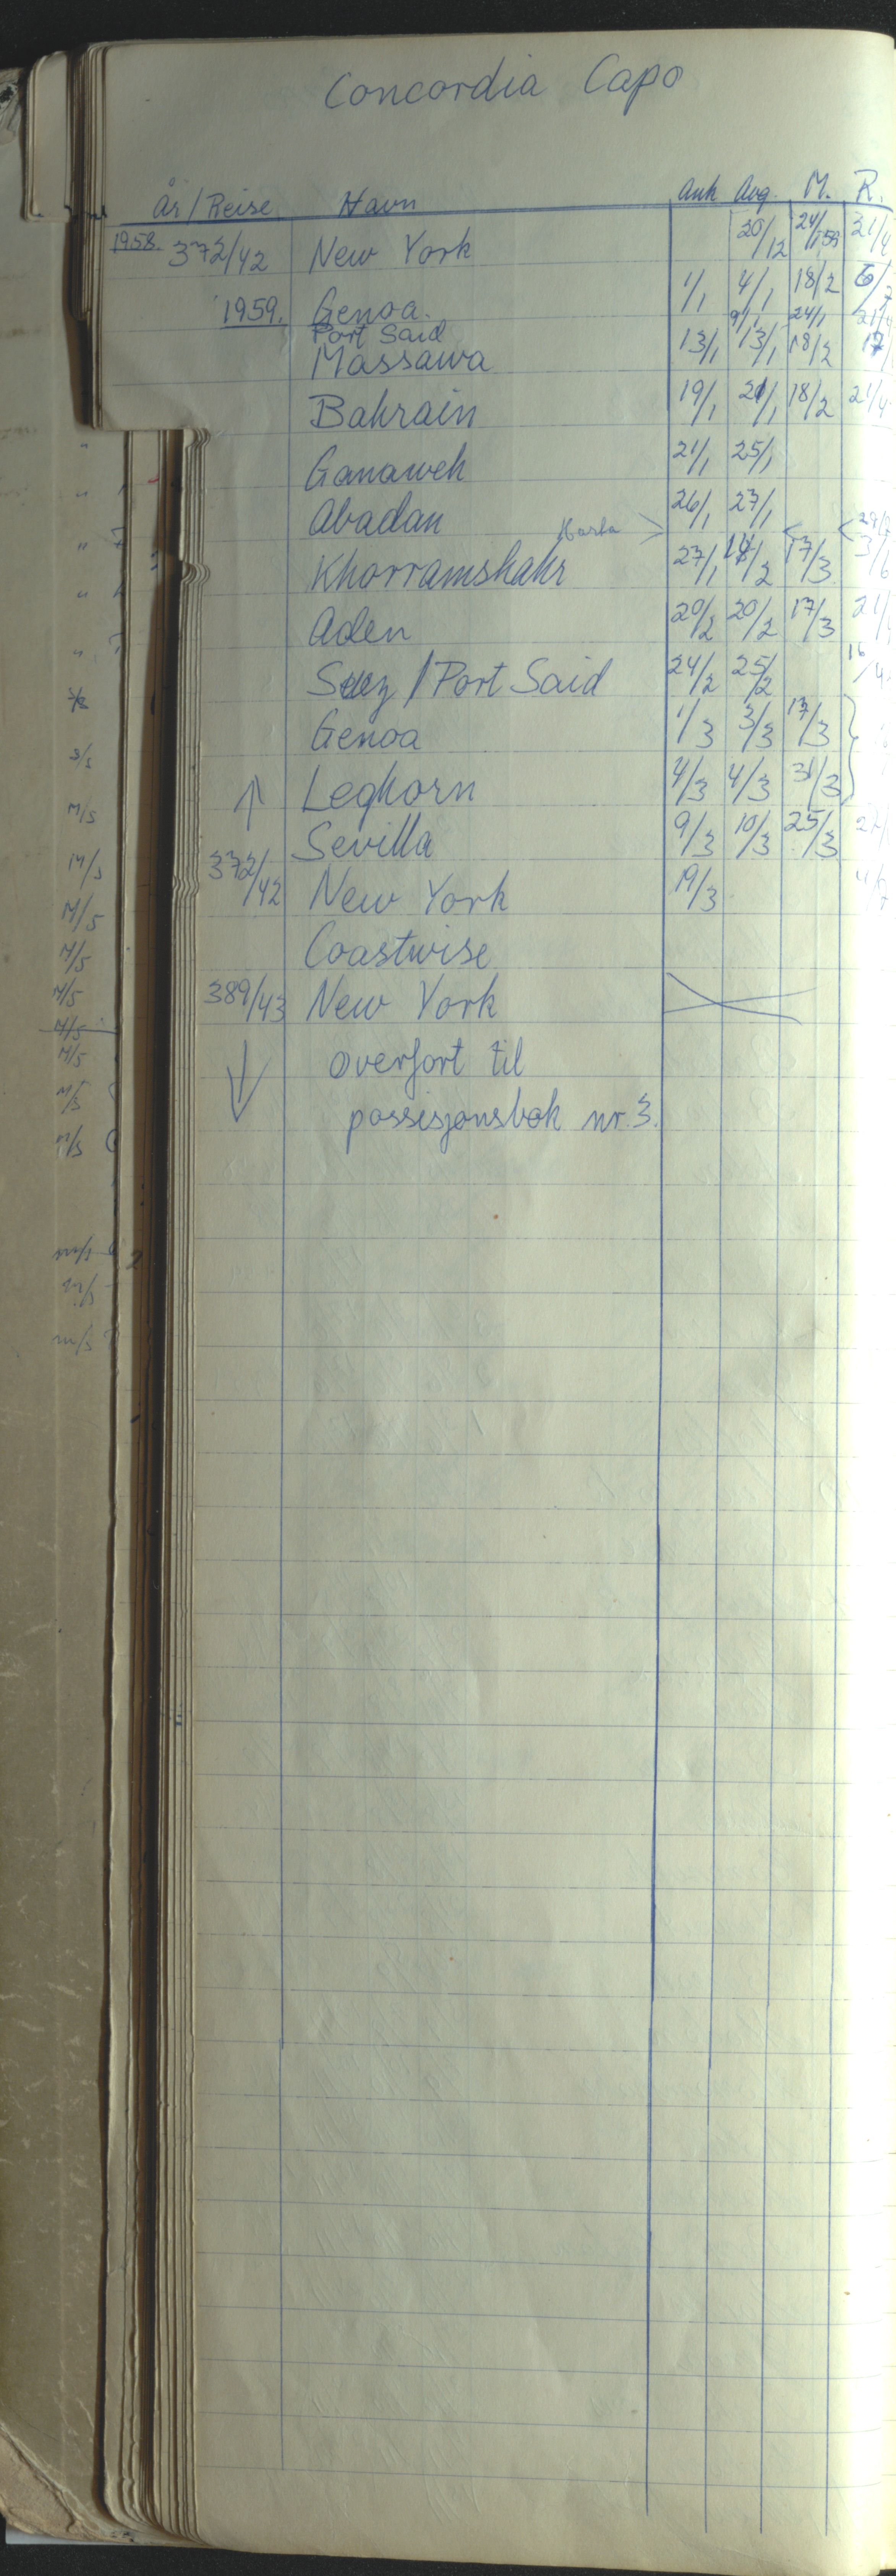 Concordia Capo
År/Reise Havn Ank Avg. M. R.
1958. 372/42 New York 20/12 24/1 59 21/4
1959. Genoa. 1/1 4/1 18/2
Port Said 9/1 24/1 21/4
Massawa 13/1 13/1 18/2
Bahrain 19/1 21/1 18/2 21/4
Ganaweh 21/1 25/1
Abadan 26/1 27/1
Khorramshahr 27/1 17/3
Aden 20/2 20/2 17/3
Suez / Port Said 24/2 25/2 16/4
Genoa 1/3 3/3 17/3
Leghorn 4/3 4/3 31/3
Sevilla 9/3 10/3 25/3
372/42 New York 19/3
Coastwise
389/43 New York
overført til
possisjonsbok nr. 3.